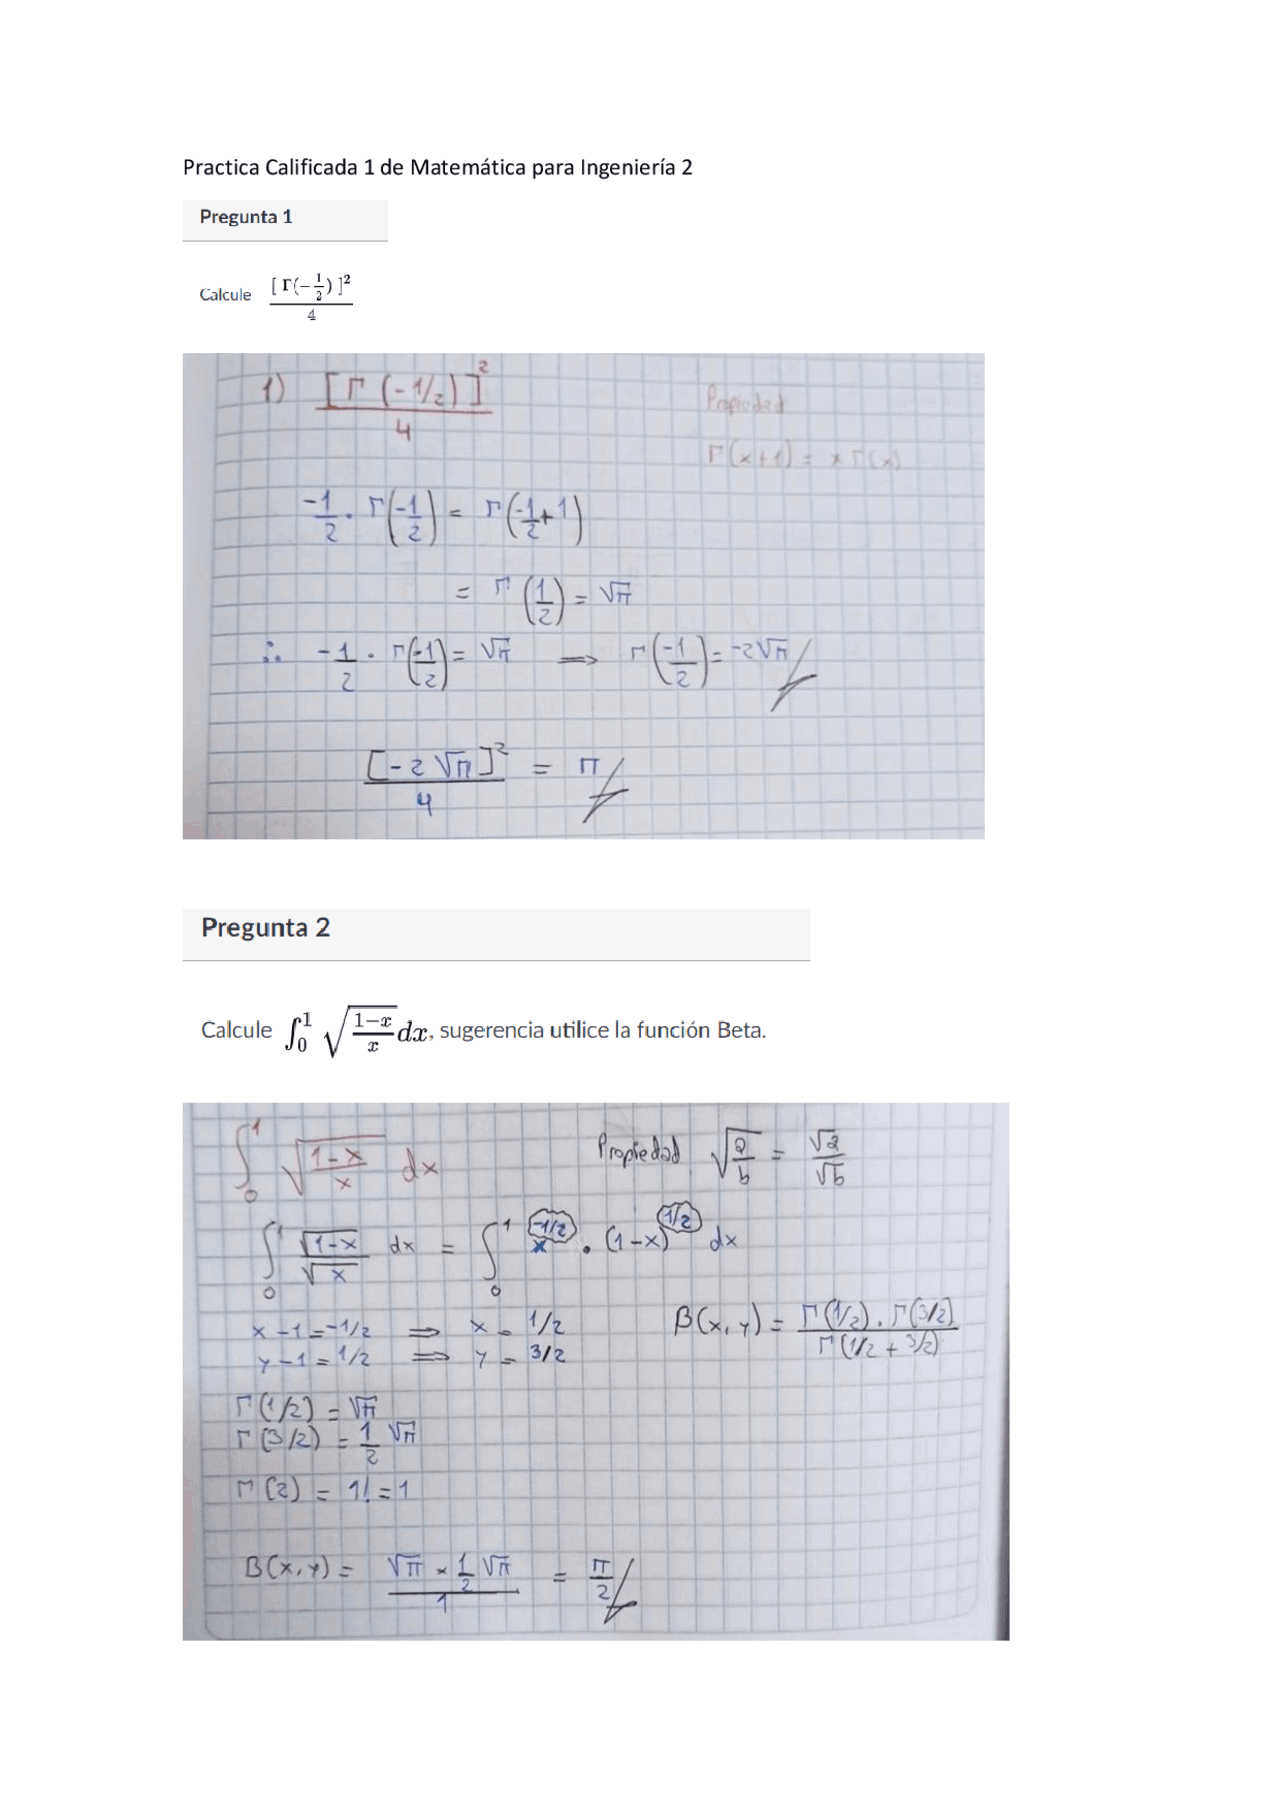 Practica Calificada 1 de Matemática para Ingeniería 2
Pregunta 1
Calcule [Γ(-1/2)]²/4
1) [Γ(-1/2)]²/4
Propiedad
Γ(x+1) = xΓ(x)
-1/2 · Γ(-1/2) = Γ(-1/2+1)
= Γ(1/2) = √π
∴ -1/2 · Γ(-1/2) = √π ⟹ Γ(-1/2) = -2√π
[-2√π]²/4 = π
Pregunta 2
Calcule ∫₀¹ √((1-x)/x) dx, sugerencia utilice la función Beta.
∫₀¹ √((1-x)/x) dx
Propiedad √(a/b) = √a/√b
∫₀¹ √(1-x)/√x dx = ∫₀¹ x^(-1/2) · (1-x)^(1/2) dx
x-1 = -1/2 ⟹ x = 1/2
y-1 = 1/2 ⟹ y = 3/2
β(x,y) = Γ(1/2).Γ(3/2)/Γ(1/2 + 3/2)
Γ(1/2) = √π
Γ(3/2) = 1/2 √π
Γ(2) = 1! = 1
β(x,y) = (√π × 1/2 √π)/1 = π/2